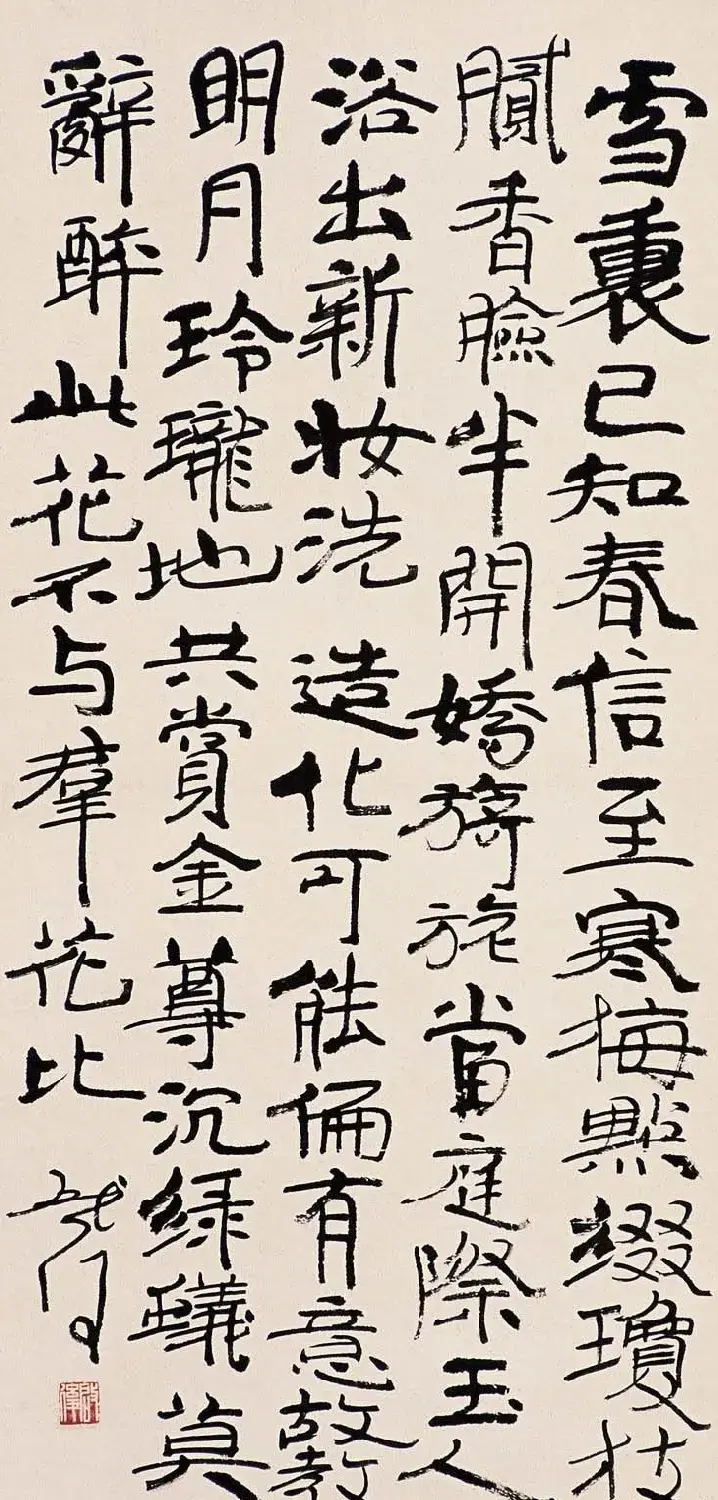 雪裏已知春信至寒梅點綴瓊枝
膩香臉半開嬌旖旎當庭際玉人
浴出新妆洗造化可能偏有意故教
明月玲瓏地共賞金尊沉綠蟻莫
辭醉此花不与羣花比